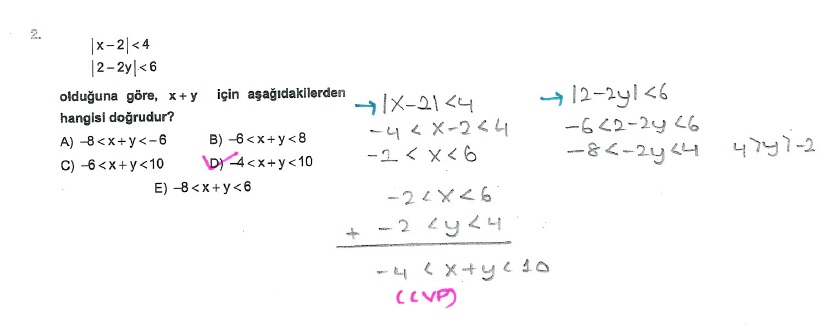 2.
|x-2|<4
|2-2y|<6
olduğuna göre, x+y için aşağıdakilerden
hangisi doğrudur?
A) -8<x+y<-6 B) -6<x+y<8
C) -6<x+y<10 D) -4<x+y<10
E) -8<x+y<6
→ |x-2| <4
-4 < x-2 < 4
-2 < x < 6
→ |2-2y| <6
-6<2-2y <6
-8< -2y <4 4>y>-2
-2 < x < 6
+ -2 < y < 4
-4 < x+y < 10
(CVP)